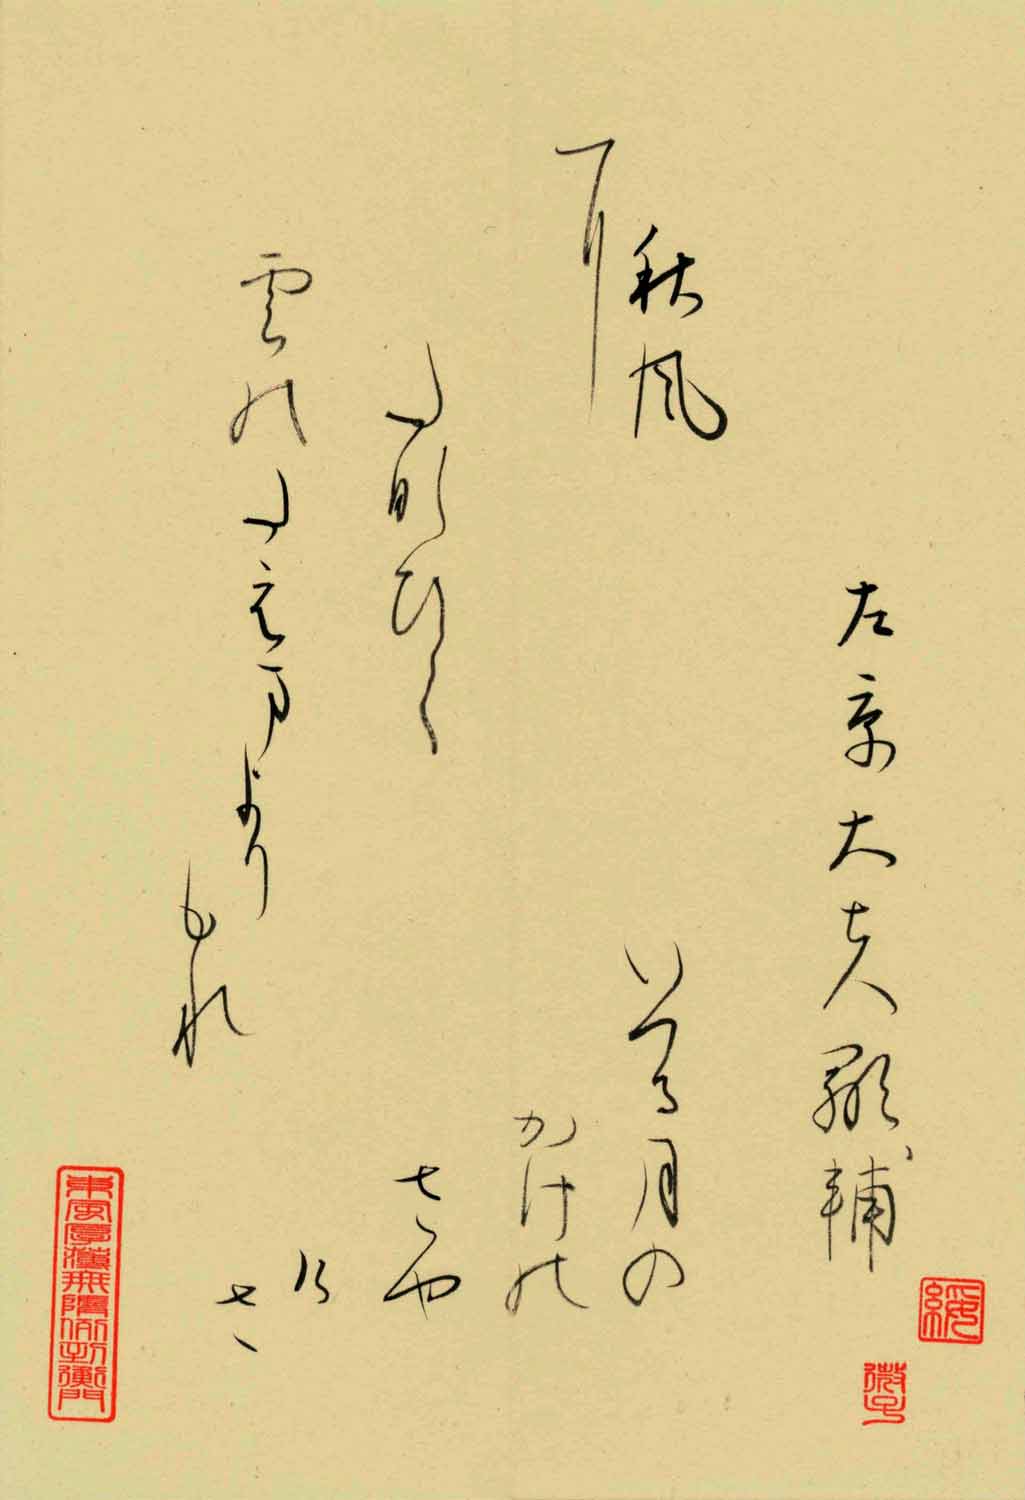 左京大夫顯輔
秋風
に
たなひく
雲のたえまより
もれ
いつる月の
かけの
さや
け
さ